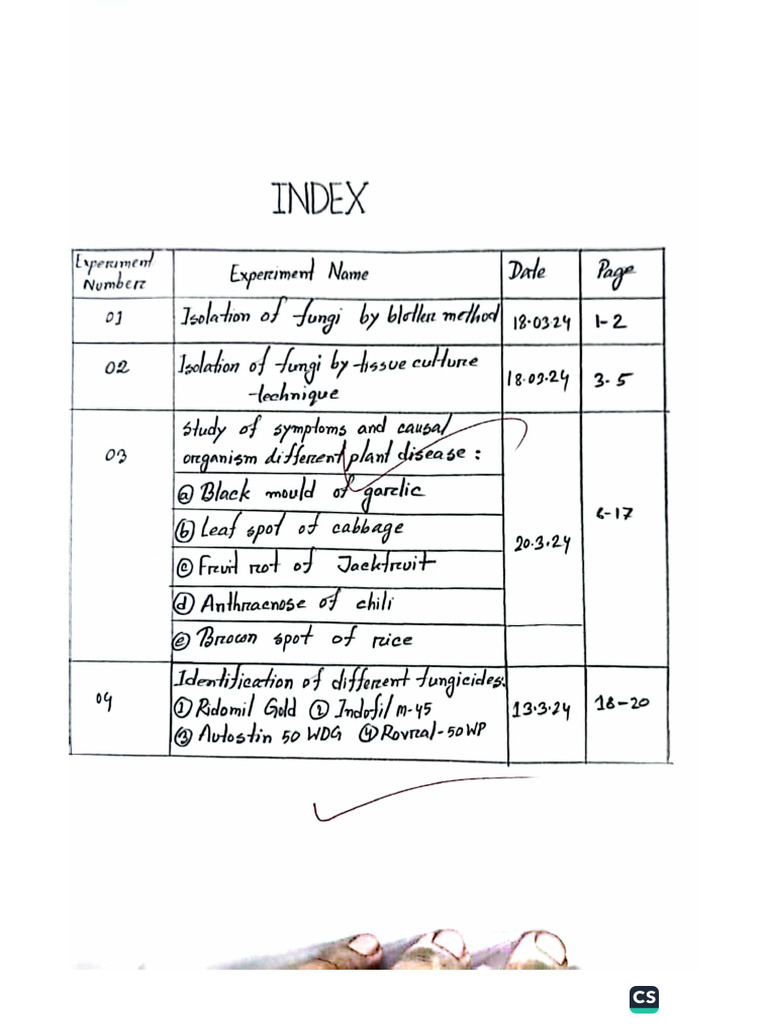 INDEX
Experiment Number Experiment Name Date Page
01 Isolation of fungi by blotter method 18.03.24 1-2
02 Isolation of fungi by tissue culture technique 18.03.24 3-5
03 Study of symptoms and causal
organism different plant disease:
ⓐ Black mould of garlic
ⓑ Leaf spot of cabbage
6-17
20.3.24
ⓒ Fruit rot of Jackfruit
ⓓ Anthracnose of chili
ⓔ Brown spot of rice
04 Identification of different fungicides.
① Ridomil Gold ② Indofil M-45 13.3.24 18-20
③ Autostin 50 WDG ④ Rovral-50 WP
CS